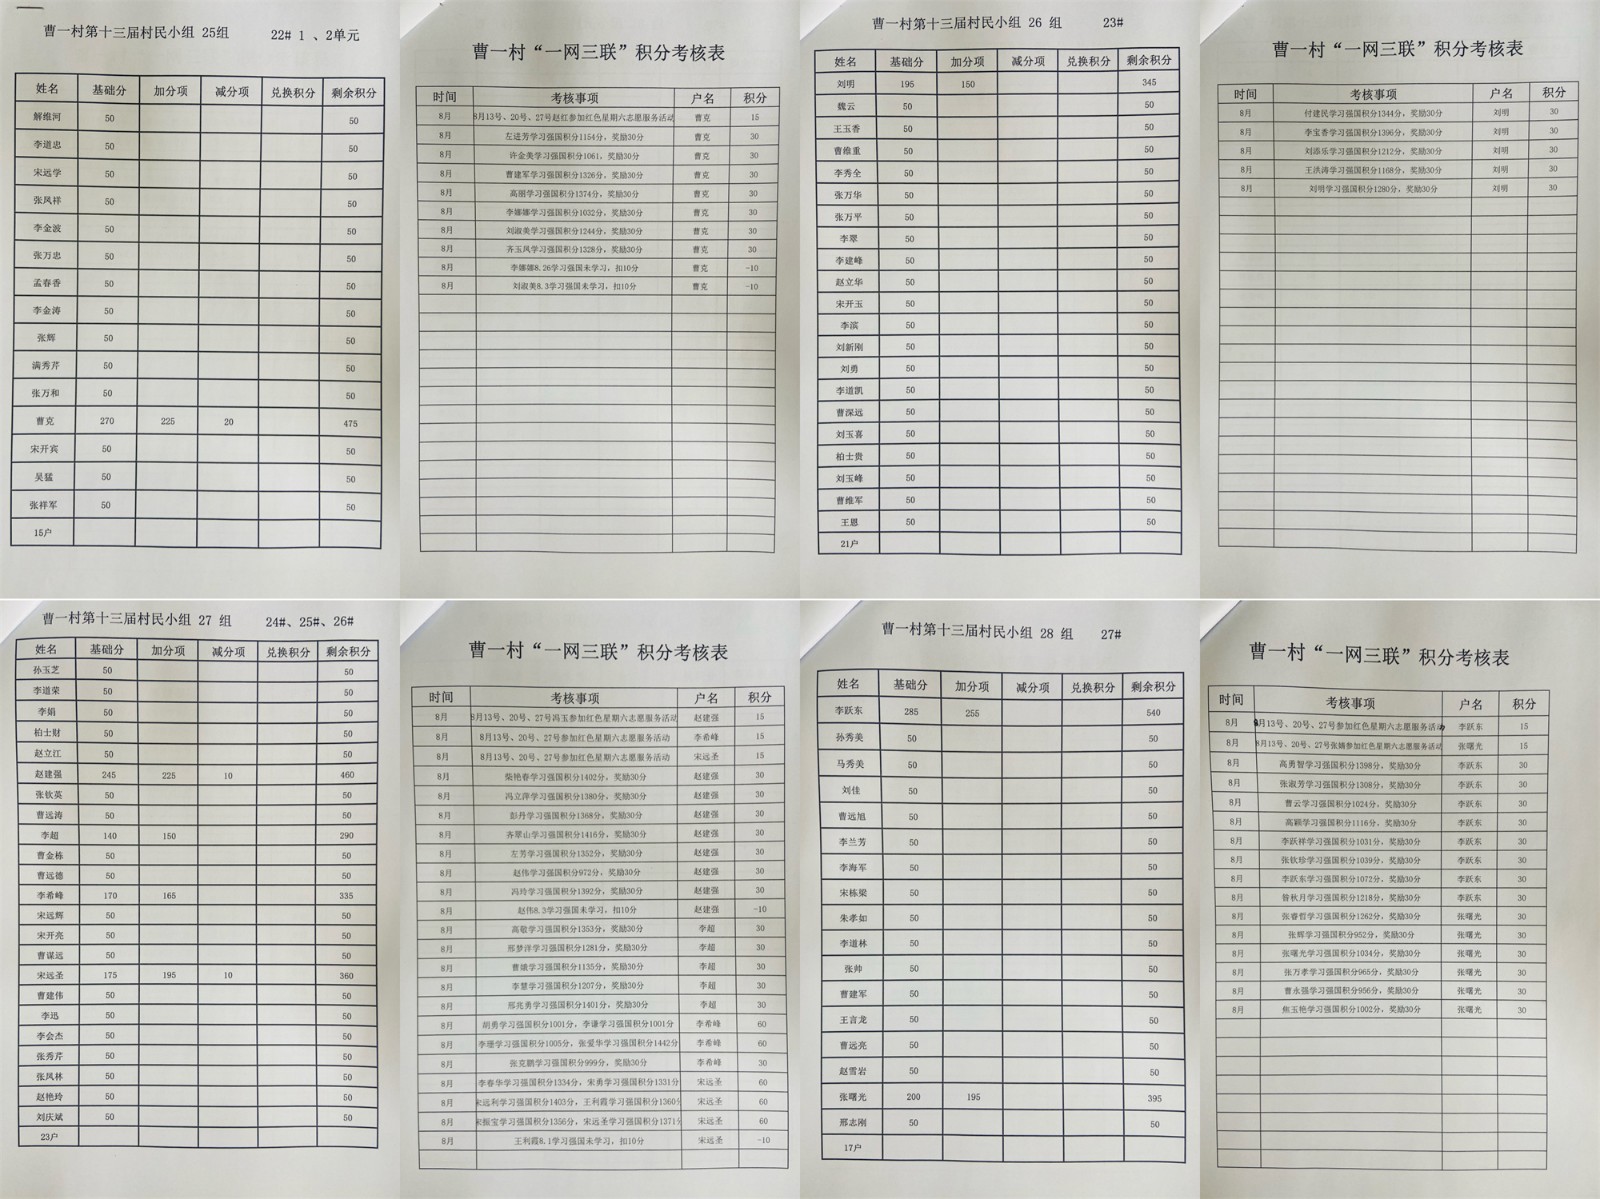 曹一村第十三届村民小组 25组 22# 1 、2单元
姓名 基础分 加分项 减分项 兑换积分 剩余积分
解维河 50 50
李道忠 50 50
宋远学 50 50
张凤祥 50 50
李金波 50 50
张万忠 50 50
孟春香 50 50
李金涛 50 50
张辉 50 50
满秀芹 50 50
张万和 50 50
曹克 270 225 20 475
宋开宾 50 50
吴猛 50 50
张祥军 50 50
15户
曹一村“一网三联”积分考核表
时间 考核事项 户名 积分
8月 8月13号、20号、27号赵红参加红色星期六志愿服务活动 曹克 15
8月 左迳芳学习强国积分1154分，奖励30分 曹克 30
8月 许金美学习强国积分1061，奖励30分 曹克 30
8月 曹建军学习强国积分1326分，奖励30分 曹克 30
8月 高丽学习强国积分1374分，奖励30分 曹克 30
8月 李娜娜学习强国积分1032分，奖励30分 曹克 30
8月 刘淑美学习强国积分1244分，奖励30分 曹克 30
8月 齐玉凤学习强国积分1328分，奖励30分 曹克 30
8月 李娜娜8.26学习强国未学习，扣10分 曹克 -10
8月 刘淑美8.3学习强国未学习，扣10分 曹克 -10
曹一村第十三届村民小组 26 组 23#
姓名 基础分 加分项 减分项 兑换积分 剩余积分
刘明 195 150 345
魏云 50 50
王玉香 50 50
曹维重 50 50
李秀全 50 50
张万华 50 50
张万平 50 50
李翠 50 50
李建峰 50 50
赵立华 50 50
宋开玉 50 50
李滨 50 50
刘新刚 50 50
刘勇 50 50
李道凯 50 50
曹深远 50 50
刘玉喜 50 50
柏士贵 50 50
刘玉峰 50 50
曹维军 50 50
王恩 50 50
21户
曹一村“一网三联”积分考核表
时间 考核事项 户名 积分
8月 付建民学习强国积分1344分，奖励30分 刘明 30
8月 李宝香学习强国积分1396分，奖励30分 刘明 30
8月 刘添乐学习强国积分1212分，奖励30分 刘明 30
8月 王洪涛学习强国积分1168分，奖励30分 刘明 30
8月 刘明学习强国积分1280分，奖励30分 刘明 30
曹一村第十三届村民小组 27 组 24#、25#、26#
姓名 基础分 加分项 减分项 兑换积分 剩余积分
孙玉芝 50 50
李道荣 50 50
李娟 50 50
柏士财 50 50
赵立江 50 50
赵建强 245 225 10 460
张钦英 50 50
曹远涛 50 50
李超 140 150 290
曹金栋 50 50
曹远德 50 50
李希峰 170 165 335
宋远辉 50 50
宋开亮 50 50
曹谋远 50 50
宋远圣 175 195 10 360
曹建伟 50 50
李迅 50 50
李会杰 50 50
张秀芹 50 50
张凤林 50 50
赵艳玲 50 50
刘庆斌 50 50
23户
曹一村“一网三联”积分考核表
时间 考核事项 户名 积分
8月 8月13号、20号、27号冯玉参加红色星期六志愿服务活动 赵建强 15
8月 8月13号、20号、27号参加红色星期六志愿服务活动 李希峰 15
8月 8月13号、20号、27号参加红色星期六志愿服务活动 宋远圣 15
8月 柴艳春学习强国积分1402分，奖励30分 赵建强 30
8月 冯立萍学习强国积分1380分，奖励30分 赵建强 30
8月 彭丹学习强国积分1368分，奖励30分 赵建强 30
8月 齐翠山学习强国积分1416分，奖励30分 赵建强 30
8月 左芳学习强国积分1352分，奖励30分 赵建强 30
8月 赵伟学习强国积分972分，奖励30分 赵建强 30
8月 冯玲学习强国积分1392分，奖励30分 赵建强 30
8月 赵伟8.3学习强国未学习，扣10分 赵建强 -10
8月 高敬学习强国积分1353分，奖励30分 李超 30
8月 邢梦洋学习强国积分1281分，奖励30分 李超 30
8月 曹娥学习强国积分1135分，奖励30分 李超 30
8月 李慧学习强国积分1207分，奖励30分 李超 30
8月 邢兆勇学习强国积分1401分，奖励30分 李超 30
8月 胡勇学习强国积分1001分，李谦学习强国积分1001分 李希峰 60
8月 李珊学习强国积分1005分，张爱华学习强国积分1442分 李希峰 60
8月 张克鹏学习强国积分999分，奖励30分 李希峰 30
8月 李春华学习强国积分1334分，宋勇学习强国积分1331分 宋远圣 60
8月 宋远利学习强国积分1403分，王利霞学习强国积分1360分 宋远圣 60
8月 宋振宝学习强国积分1356分，宋远圣学习强国积分1371分 宋远圣 60
8月 王利霞8.1学习强国未学习，扣10分 宋远圣 -10
曹一村第十三届村民小组 28 组 27#
姓名 基础分 加分项 减分项 兑换积分 剩余积分
李跃东 285 255 540
孙秀美 50 50
马秀美 50 50
刘佳 50 50
曹远旭 50 50
李兰芳 50 50
李海军 50 50
宋栋梁 50 50
朱孝如 50 50
李道林 50 50
张帅 50 50
曹建军 50 50
王言龙 50 50
曹远亮 50 50
赵雪岩 50 50
张曙光 200 195 395
邢志刚 50 50
17户
曹一村“一网三联”积分考核表
时间 考核事项 户名 积分
8月 8月13号、20号、27号参加红色星期六志愿服务活动 李跃东 15
8月 8月13号、20号、27号张嫡参加红色星期六志愿服务活动 张曙光 15
8月 高勇智学习强国积分1398分，奖励30分 李跃东 30
8月 张淑芳学习强国积分1308分，奖励30分 李跃东 30
8月 曹云学习强国积分1024分，奖励30分 李跃东 30
8月 高颖学习强国积分1116分，奖励30分 李跃东 30
8月 李跃祥学习强国积分1031分，奖励30分 李跃东 30
8月 张钦珍学习强国积分1039分，奖励30分 李跃东 30
8月 李跃东学习强国积分1072分，奖励30分 李跃东 30
8月 昝秋月学习强国积分1218分，奖励30分 李跃东 30
8月 张睿哲学习强国积分1262分，奖励30分 张曙光 30
8月 张辉学习强国积分952分，奖励30分 张曙光 30
8月 张曙光学习强国积分1034分，奖励30分 张曙光 30
8月 张万孝学习强国积分965分，奖励30分 张曙光 30
8月 曹永强学习强国积分956分，奖励30分 张曙光 30
8月 焦玉艳学习强国积分1002分，奖励30分 张曙光 30